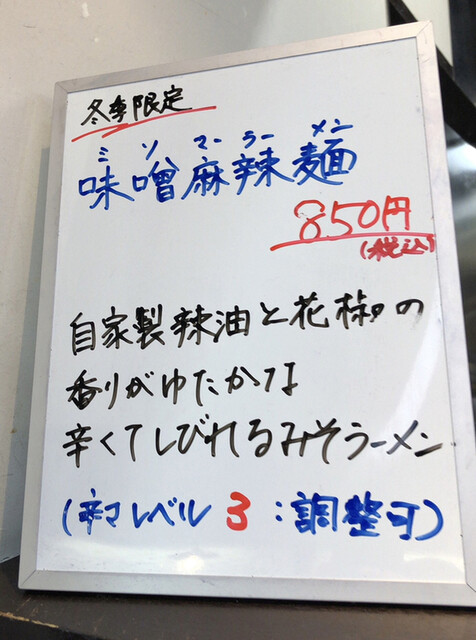 冬季限定
ミソマーラーメン
味噌麻辣麺
850円
(税込)
自家製辣油と花椒の
香りがゆたかな
辛くてしびれるみそラーメン
(辛マレベル3:調整可)